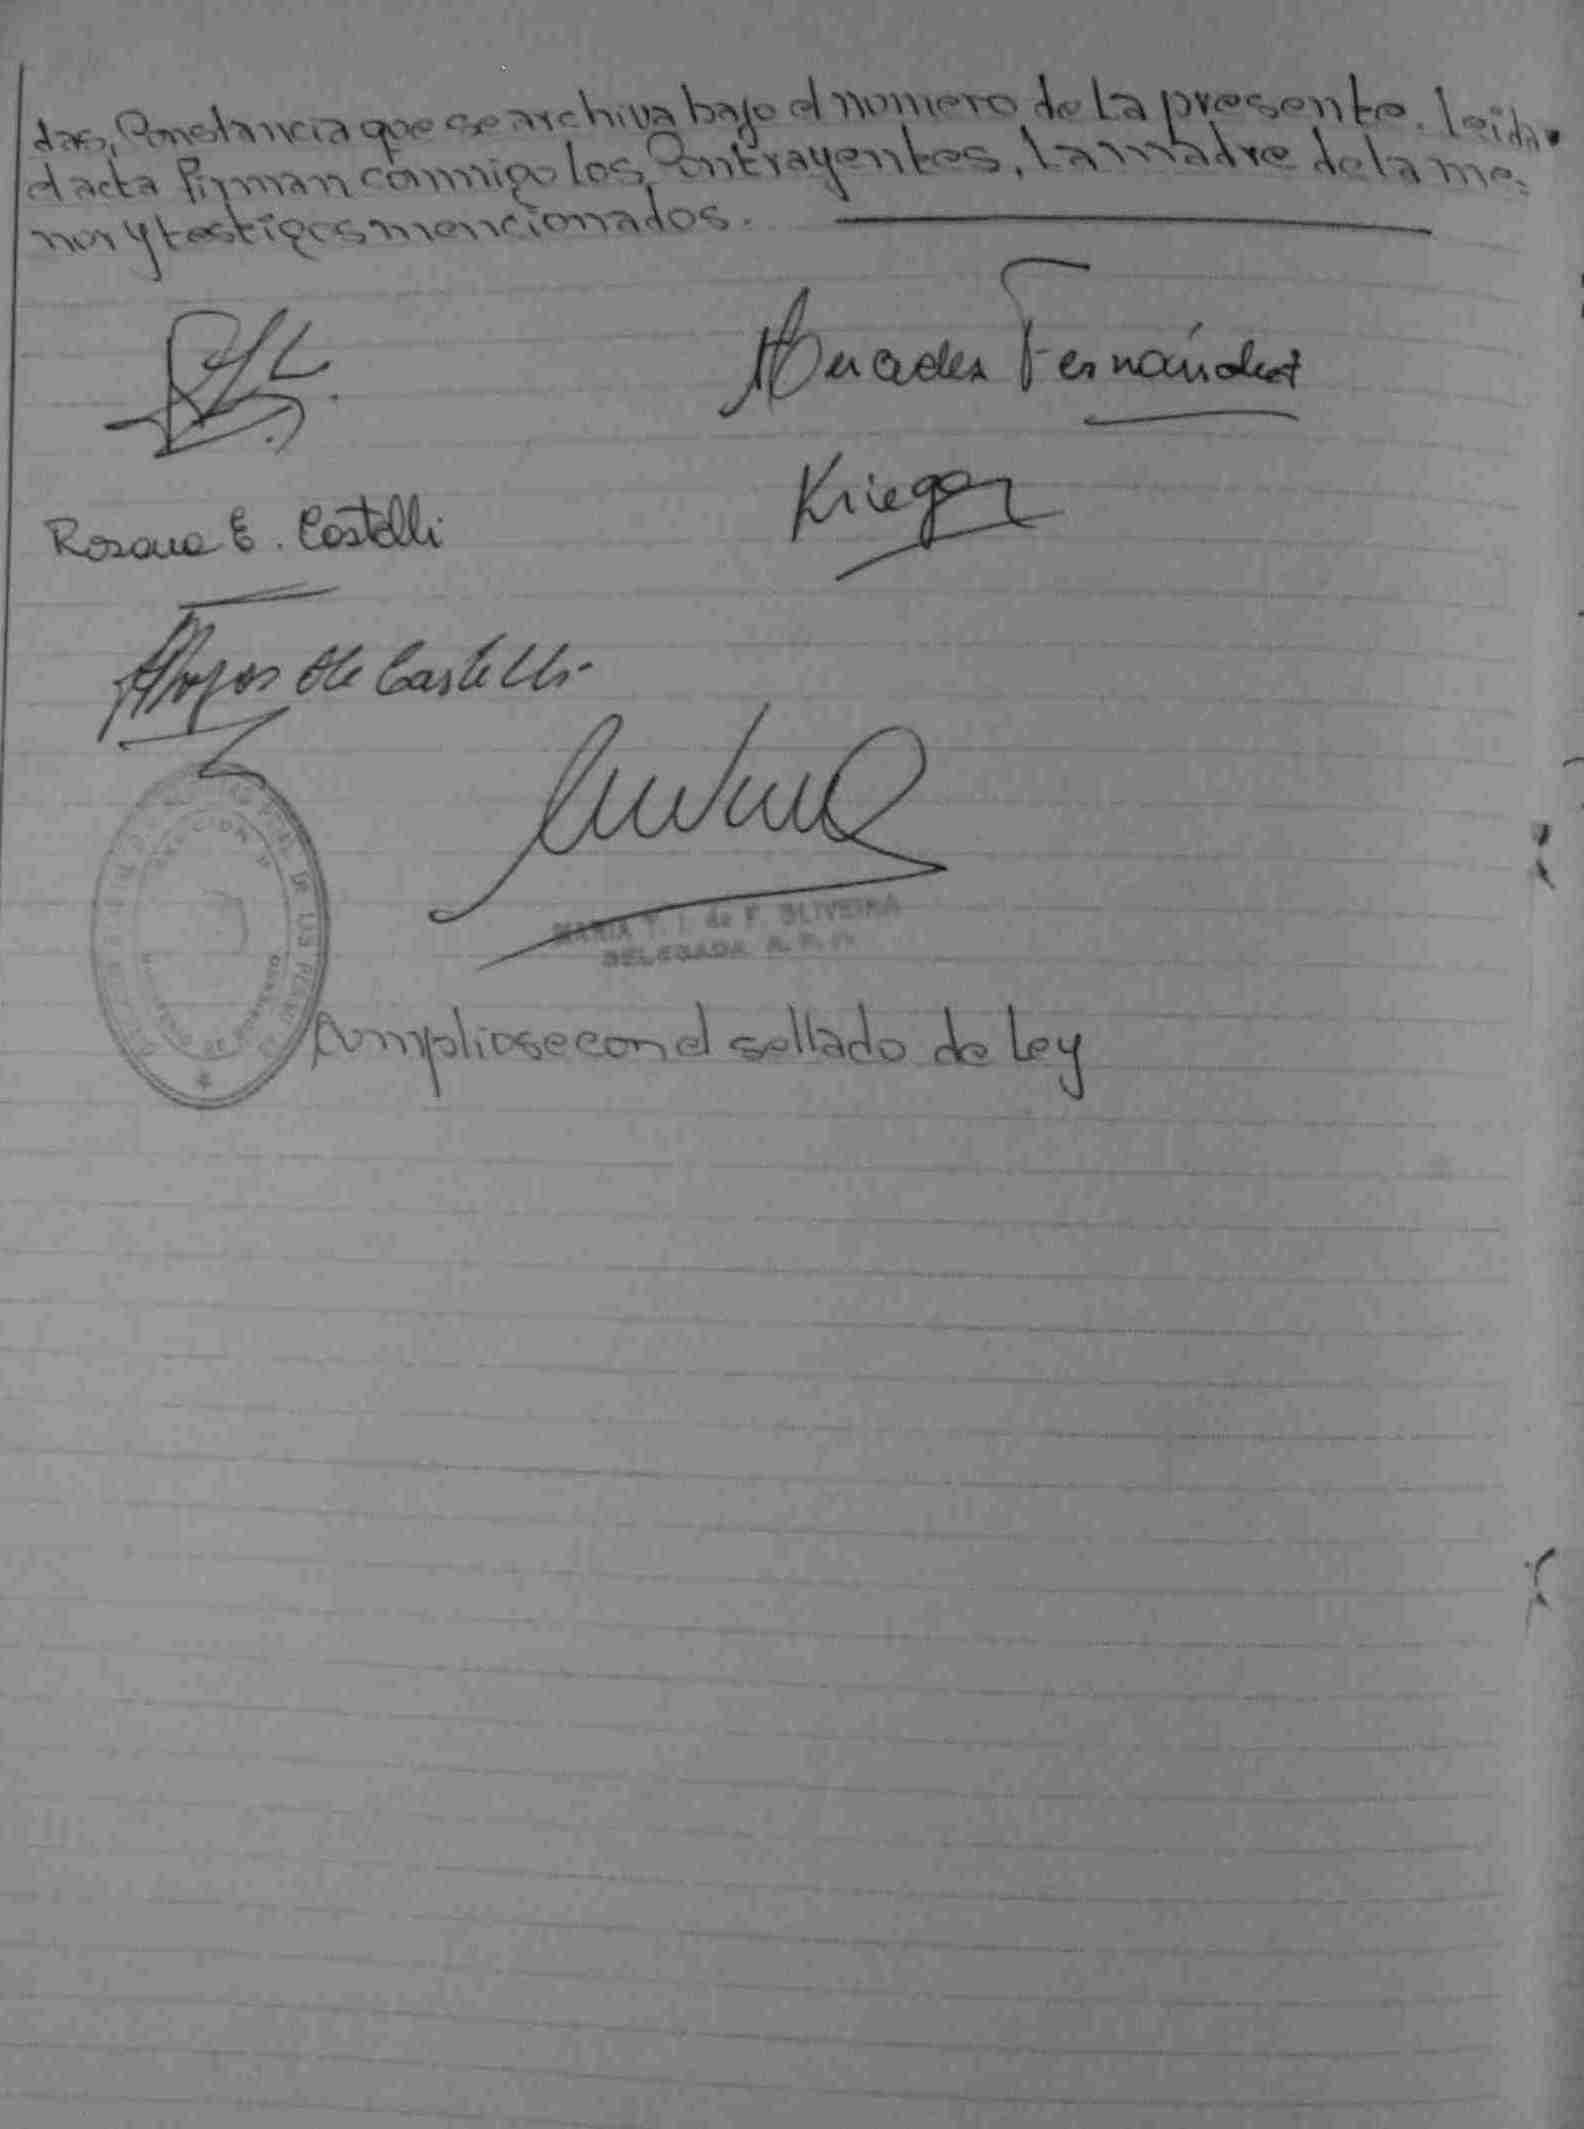 das, Constancia que se archiva bajo el numero de la presente. Leida
el acta firman conmigo los Contrayentes, la madre de la me=
nor y testigos mencionados.
Mercedes Fernández
Krieger
Rosana E. Castelli
de Castelli
MARIA T. I. de F. OLIVEIRA
DELEGADA R. P.
DE LAS PERSONAS
Cumpliose con el sellado de Ley